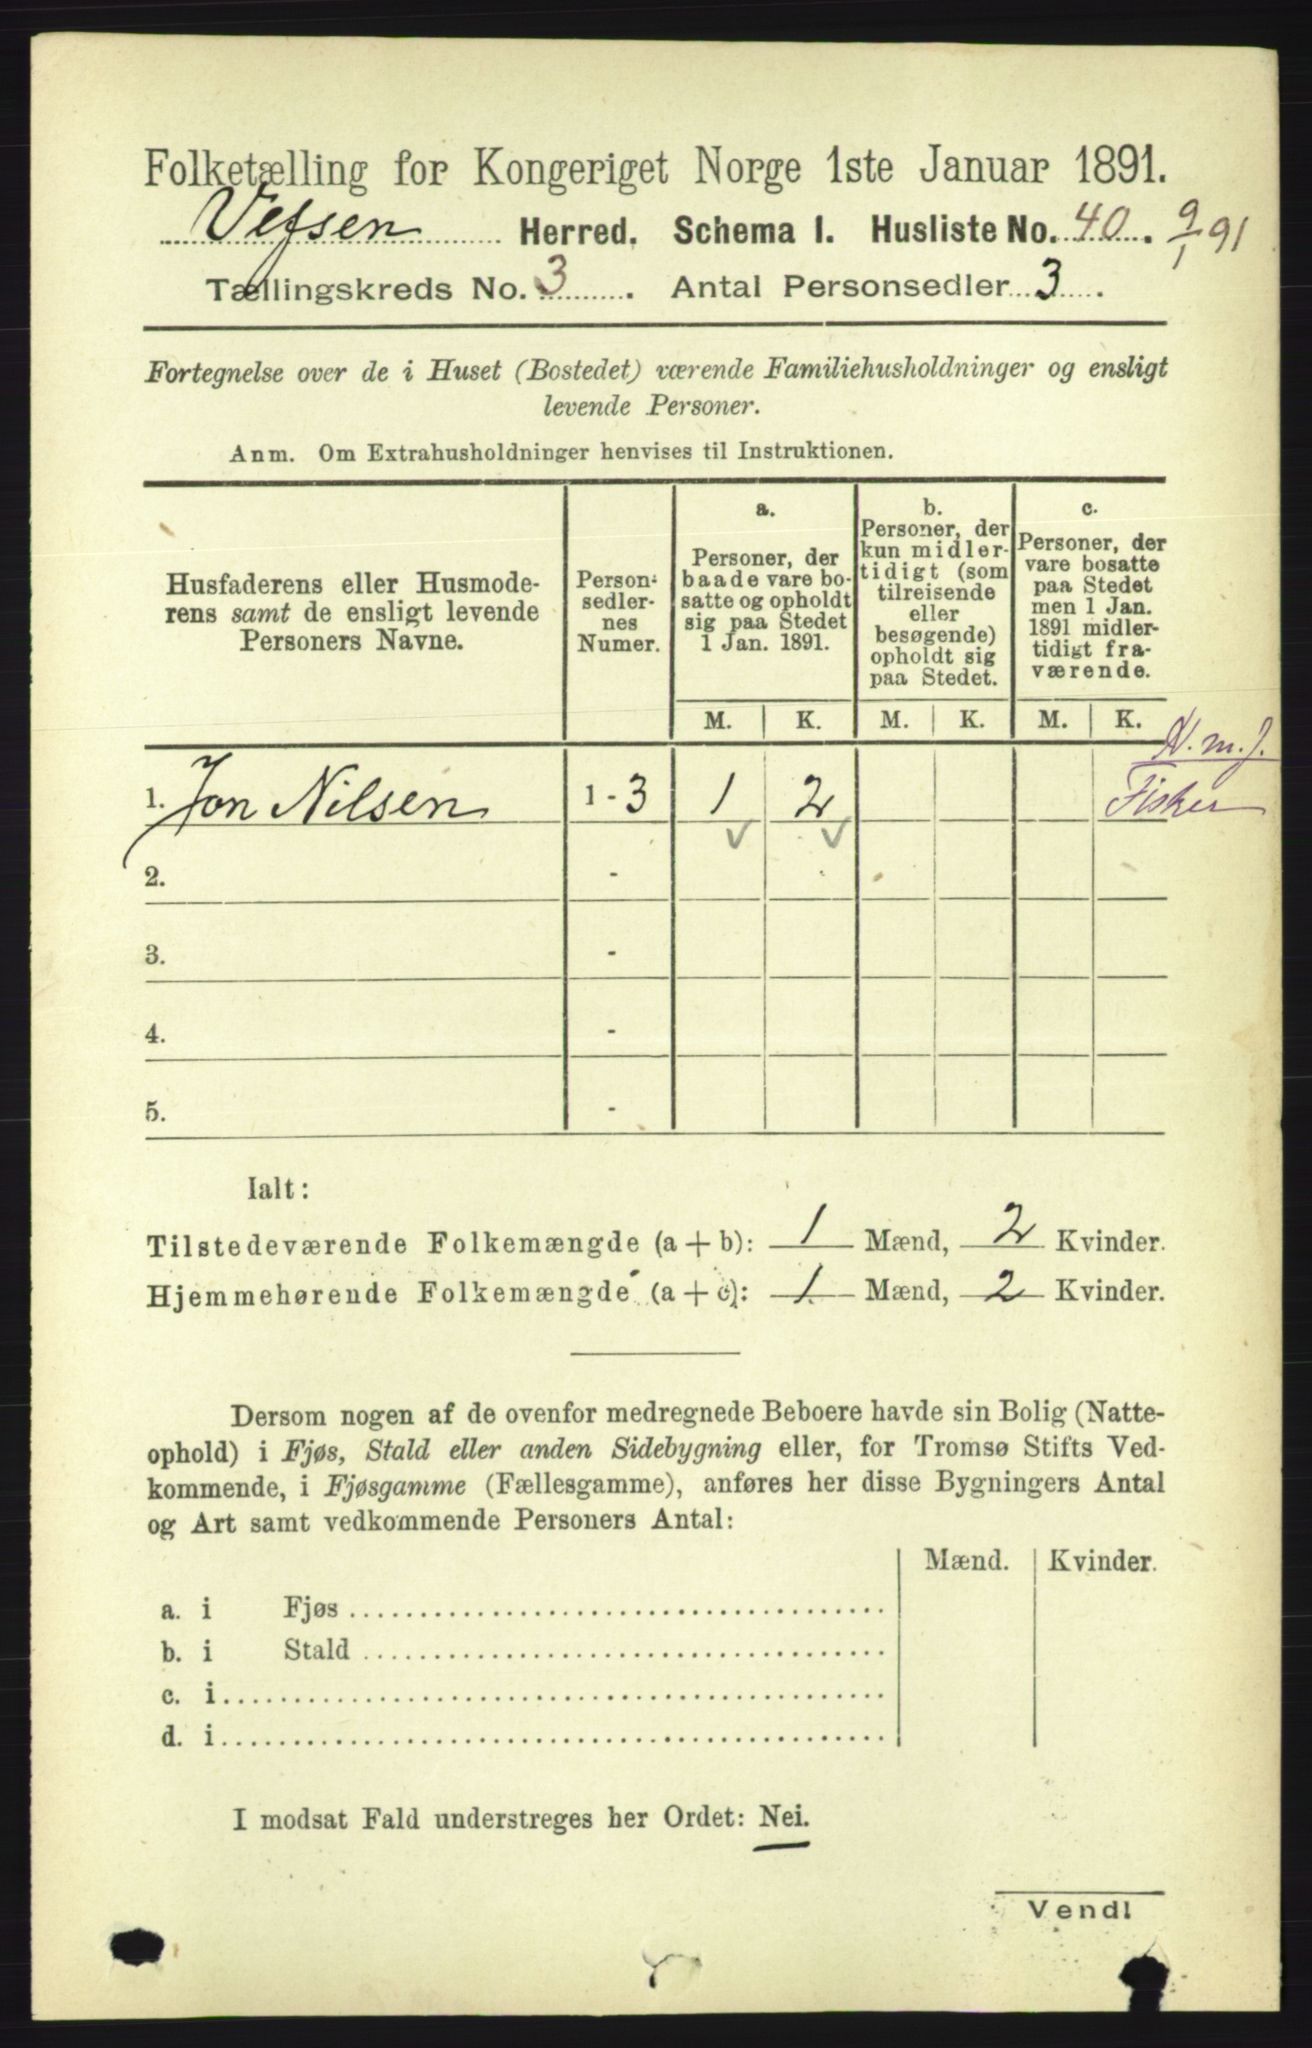 Folketælling for Kongeriget Norge 1ste Januar 1891.
Vefsen Herred. Schema I. Husliste No. 40. 9/1 91
Tællingskreds No. 3. Antal Personsedler 3.
Fortegnelse over de i Huset (Bostedet) værende Familiehusholdninger og ensligt
levende Personer.
Anm. Om Extrahusholdninger henvises til Instruktionen.
Husfaderens eller Husmode-
rens samt de ensligt levende
Personers Navne.
Person-
sedler-
nes
Numer.
a.
Personer, der
baade vare bo-
satte og opholdt
sig paa Stedet
1 Jan. 1891.
b.
Personer, der
kun midler-
tidigt (som
tilreisende
eller
besøgende)
opholdt sig
paa Stedet.
c.
Personer, der
vare bosatte
paa Stedet
men 1 Jan.
1891 midler-
tidigt fra-
værende.
M. K. M. K. M. K.
N. m. J.
1. Jon Nilsen 1 - 3 1 2 Fisker
2. -
3. -
4. -
5. -
Ialt:
Tilstedeværende Folkemængde (a + b): 1 Mænd, 2 Kvinder.
Hjemmehørende Folkemængde (a + c): 1 Mænd, 2 Kvinder.
Dersom nogen af de ovenfor medregnede Beboere havde sin Bolig (Natte-
ophold) i Fjøs, Stald eller anden Sidebygning eller, for Tromsø Stifts Ved-
kommende, i Fjøsgamme (Fællesgamme), anføres her disse Bygningers Antal
og Art samt vedkommende Personers Antal:
Mænd. Kvinder.
a. i Fjøs
b. i Stald
c. i
d. i
I modsat Fald understreges her Ordet: Nei.
Vend!